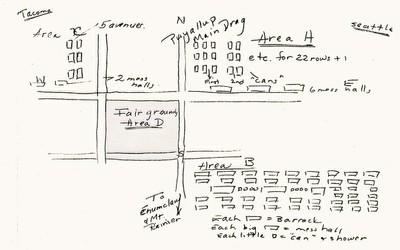 Tacoma
N
Seattle
Area C
5 avenues
Puyallup
Main Drag
Area A
etc. for 22 rows + 1
First 2nd "cans"
W
2 mess
halls
E
6 mess halls
Fairgrounds
Area D
S
Area B
To
Enumclaw
& Mt.
Rainier
Each □ = Barrack
Each big □ = mess hall
Each little □ = "can" + shower